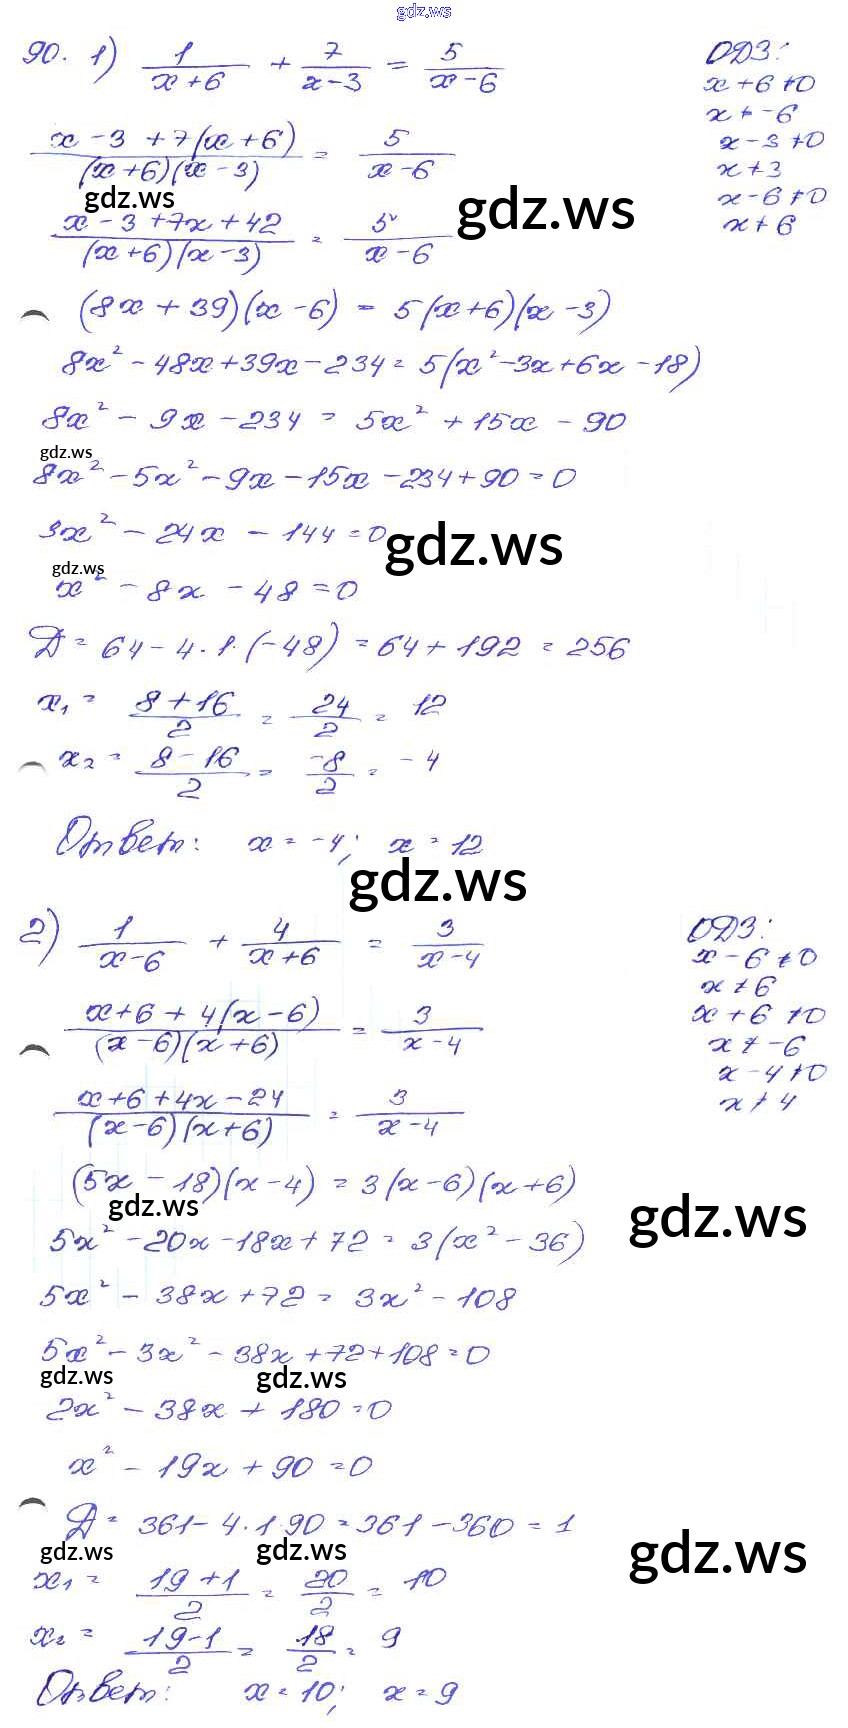 gdz.ws
90. 1) 1/(x+6) + 7/(x-3) = 5/(x-6)
ОДЗ:
x+6≠0
x≠-6
x-3≠0
x≠3
x-6≠0
x≠6
(x-3+7(x+6))/((x+6)(x-3)) = 5/(x-6)
gdz.ws
gdz.ws
(x-3+7x+42)/((x+6)(x-3)) = 5/(x-6)
(8x+39)(x-6) = 5(x+6)(x-3)
8x²-48x+39x-234 = 5(x²-3x+6x-18)
8x²-9x-234 = 5x²+15x-90
gdz.ws
8x²-5x²-9x-15x-234+90=0
3x²-24x-144=0
gdz.ws
gdz.ws
x²-8x-48=0
Д=64-4·1·(-48)=64+192=256
x₁ = (8+16)/2 = 24/2 = 12
x₂ = (8-16)/2 = -8/2 = -4
Ответ: x=-4; x=12
gdz.ws
2) 1/(x-6) + 4/(x+6) = 3/(x-4)
ОДЗ:
x-6≠0
x≠6
x+6≠0
x≠-6
x-4≠0
x≠4
(x+6+4(x-6))/((x-6)(x+6)) = 3/(x-4)
(x+6+4x-24)/((x-6)(x+6)) = 3/(x-4)
(5x-18)(x-4) = 3(x-6)(x+6)
gdz.ws
gdz.ws
5x²-20x-18x+72 = 3(x²-36)
5x²-38x+72 = 3x²-108
5x²-3x²-38x+72+108=0
gdz.ws
gdz.ws
2x²-38x+180=0
x²-19x+90=0
Д=361-4·1·90=361-360=1
gdz.ws
gdz.ws
gdz.ws
x₁ = (19+1)/2 = 20/2 = 10
x₂ = (19-1)/2 = 18/2 = 9
Ответ: x=10; x=9